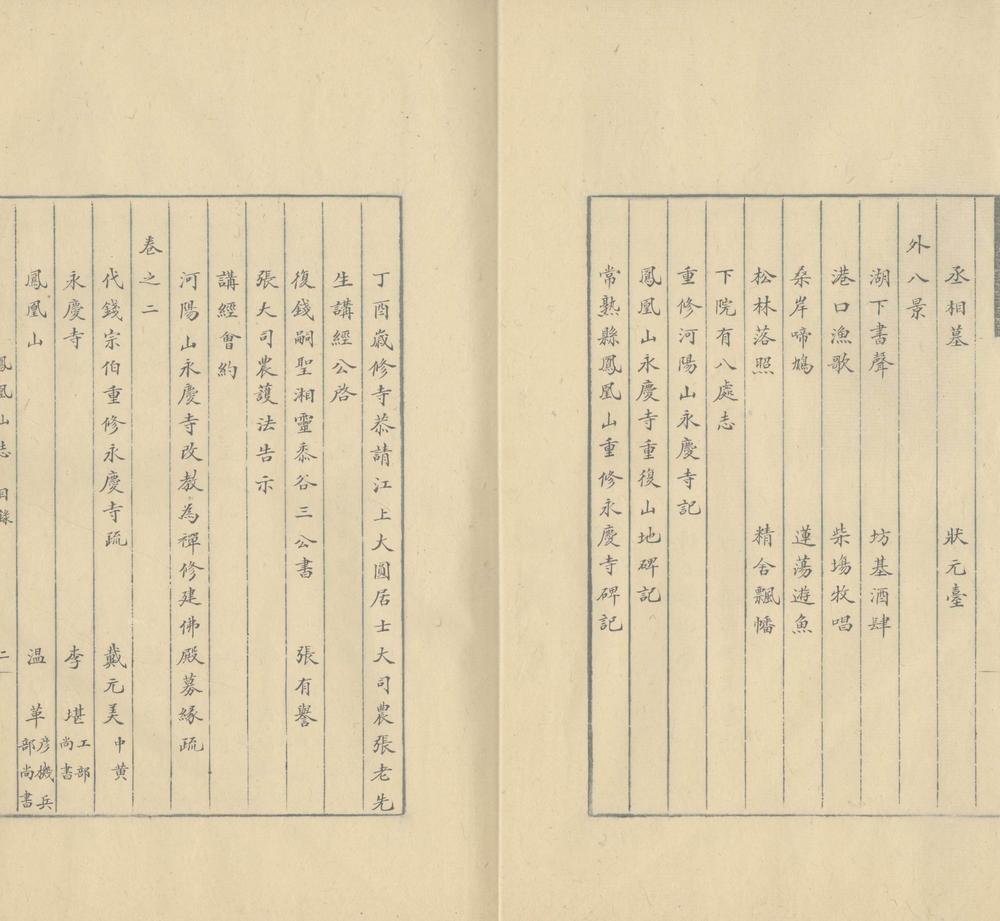 丞相墓 狀元臺
外八景
湖下書聲 坊基酒肆
港口漁歌 柴場牧唱
桑岸啼鳩 蓮蕩遊魚
松林落照 精舍飄幡
下院有八處志
重修河陽山永慶寺記
鳳凰山永慶寺重復山地碑記
常熟縣鳳凰山重修永慶寺碑記
丁酉歲修寺恭請江上大圓居士大司農張老先
生講經公啓
復錢嗣聖湘靈黍谷三公書 張有譽
張大司農護法告示
講經會約
河陽山永慶寺改教為禪修建佛殿募緣疏
卷之二
代錢宗伯重修永慶寺疏 戴元美 中黄
永慶寺 李堪 工部尚書
鳳凰山 温革 彦機兵部尚書
鳳凰山志 目錄 二